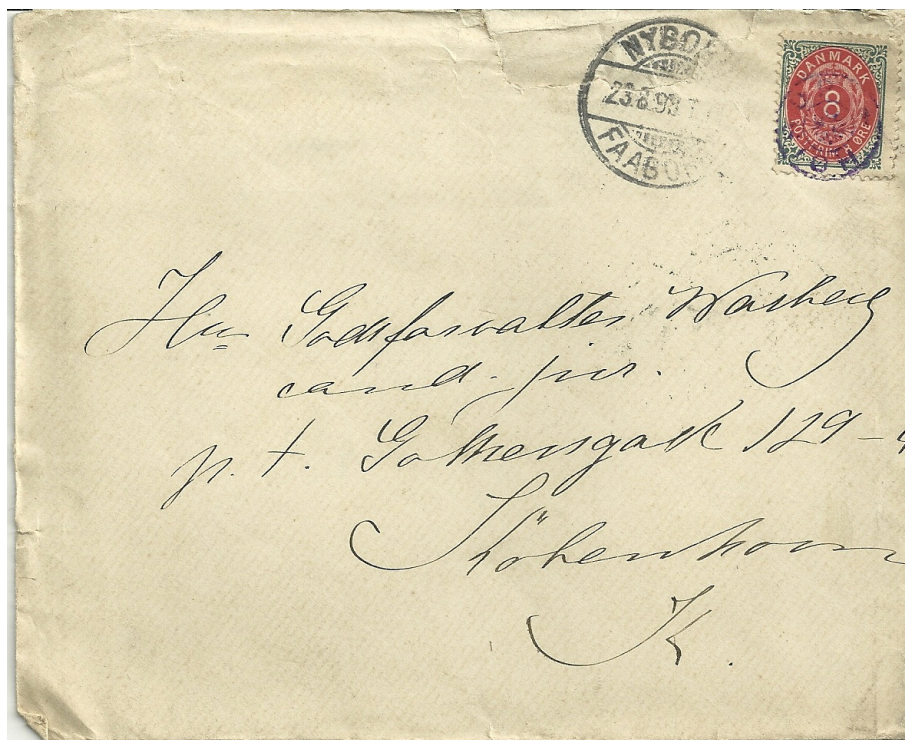 NYBO
23.8.98
FAABO
DANMARK
8
POSTFRIM. 8 ØRE
Hr. Godsforvalter Warberg
cand. jur.
p. t. Gothersgade 129 -
Köbenhavn
K.